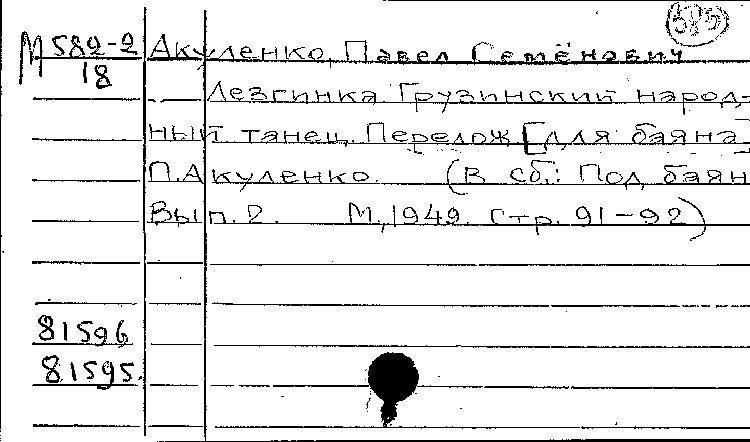 М 582-2 Акуленко, Павел Семёнович
18
Лезгинка Грузинский народ-
ный танец. Перелож. [для баяна]
П. Акуленко. (В сб.: Под баян
Вып. 2. М., 1949. Стр. 91-92)
81596
81595.